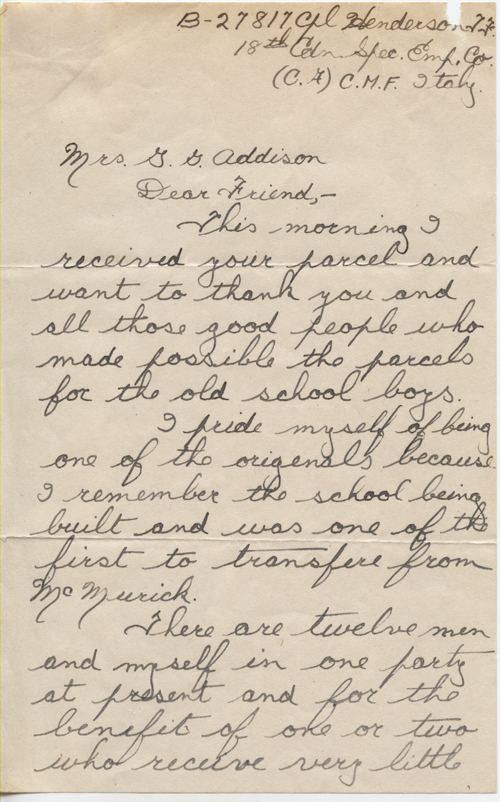 B-27817 Cpl Henderson
18th Cdn Spec. Emp. Co.
(C.A) C.M.F. Italy.
Mrs. G. G. Addison
Dear Friend,-
This morning I
received your parcel and
want to thank you and
all those good people who
made possible the parcels
for the old school boys.
I pride myself of being
one of the origenals because
I remember the school being
built and was one of the
first to transfere from
McMurick.
There are twelve men
and myself in one party
at present and for the
benifit of one or two
who receive very little